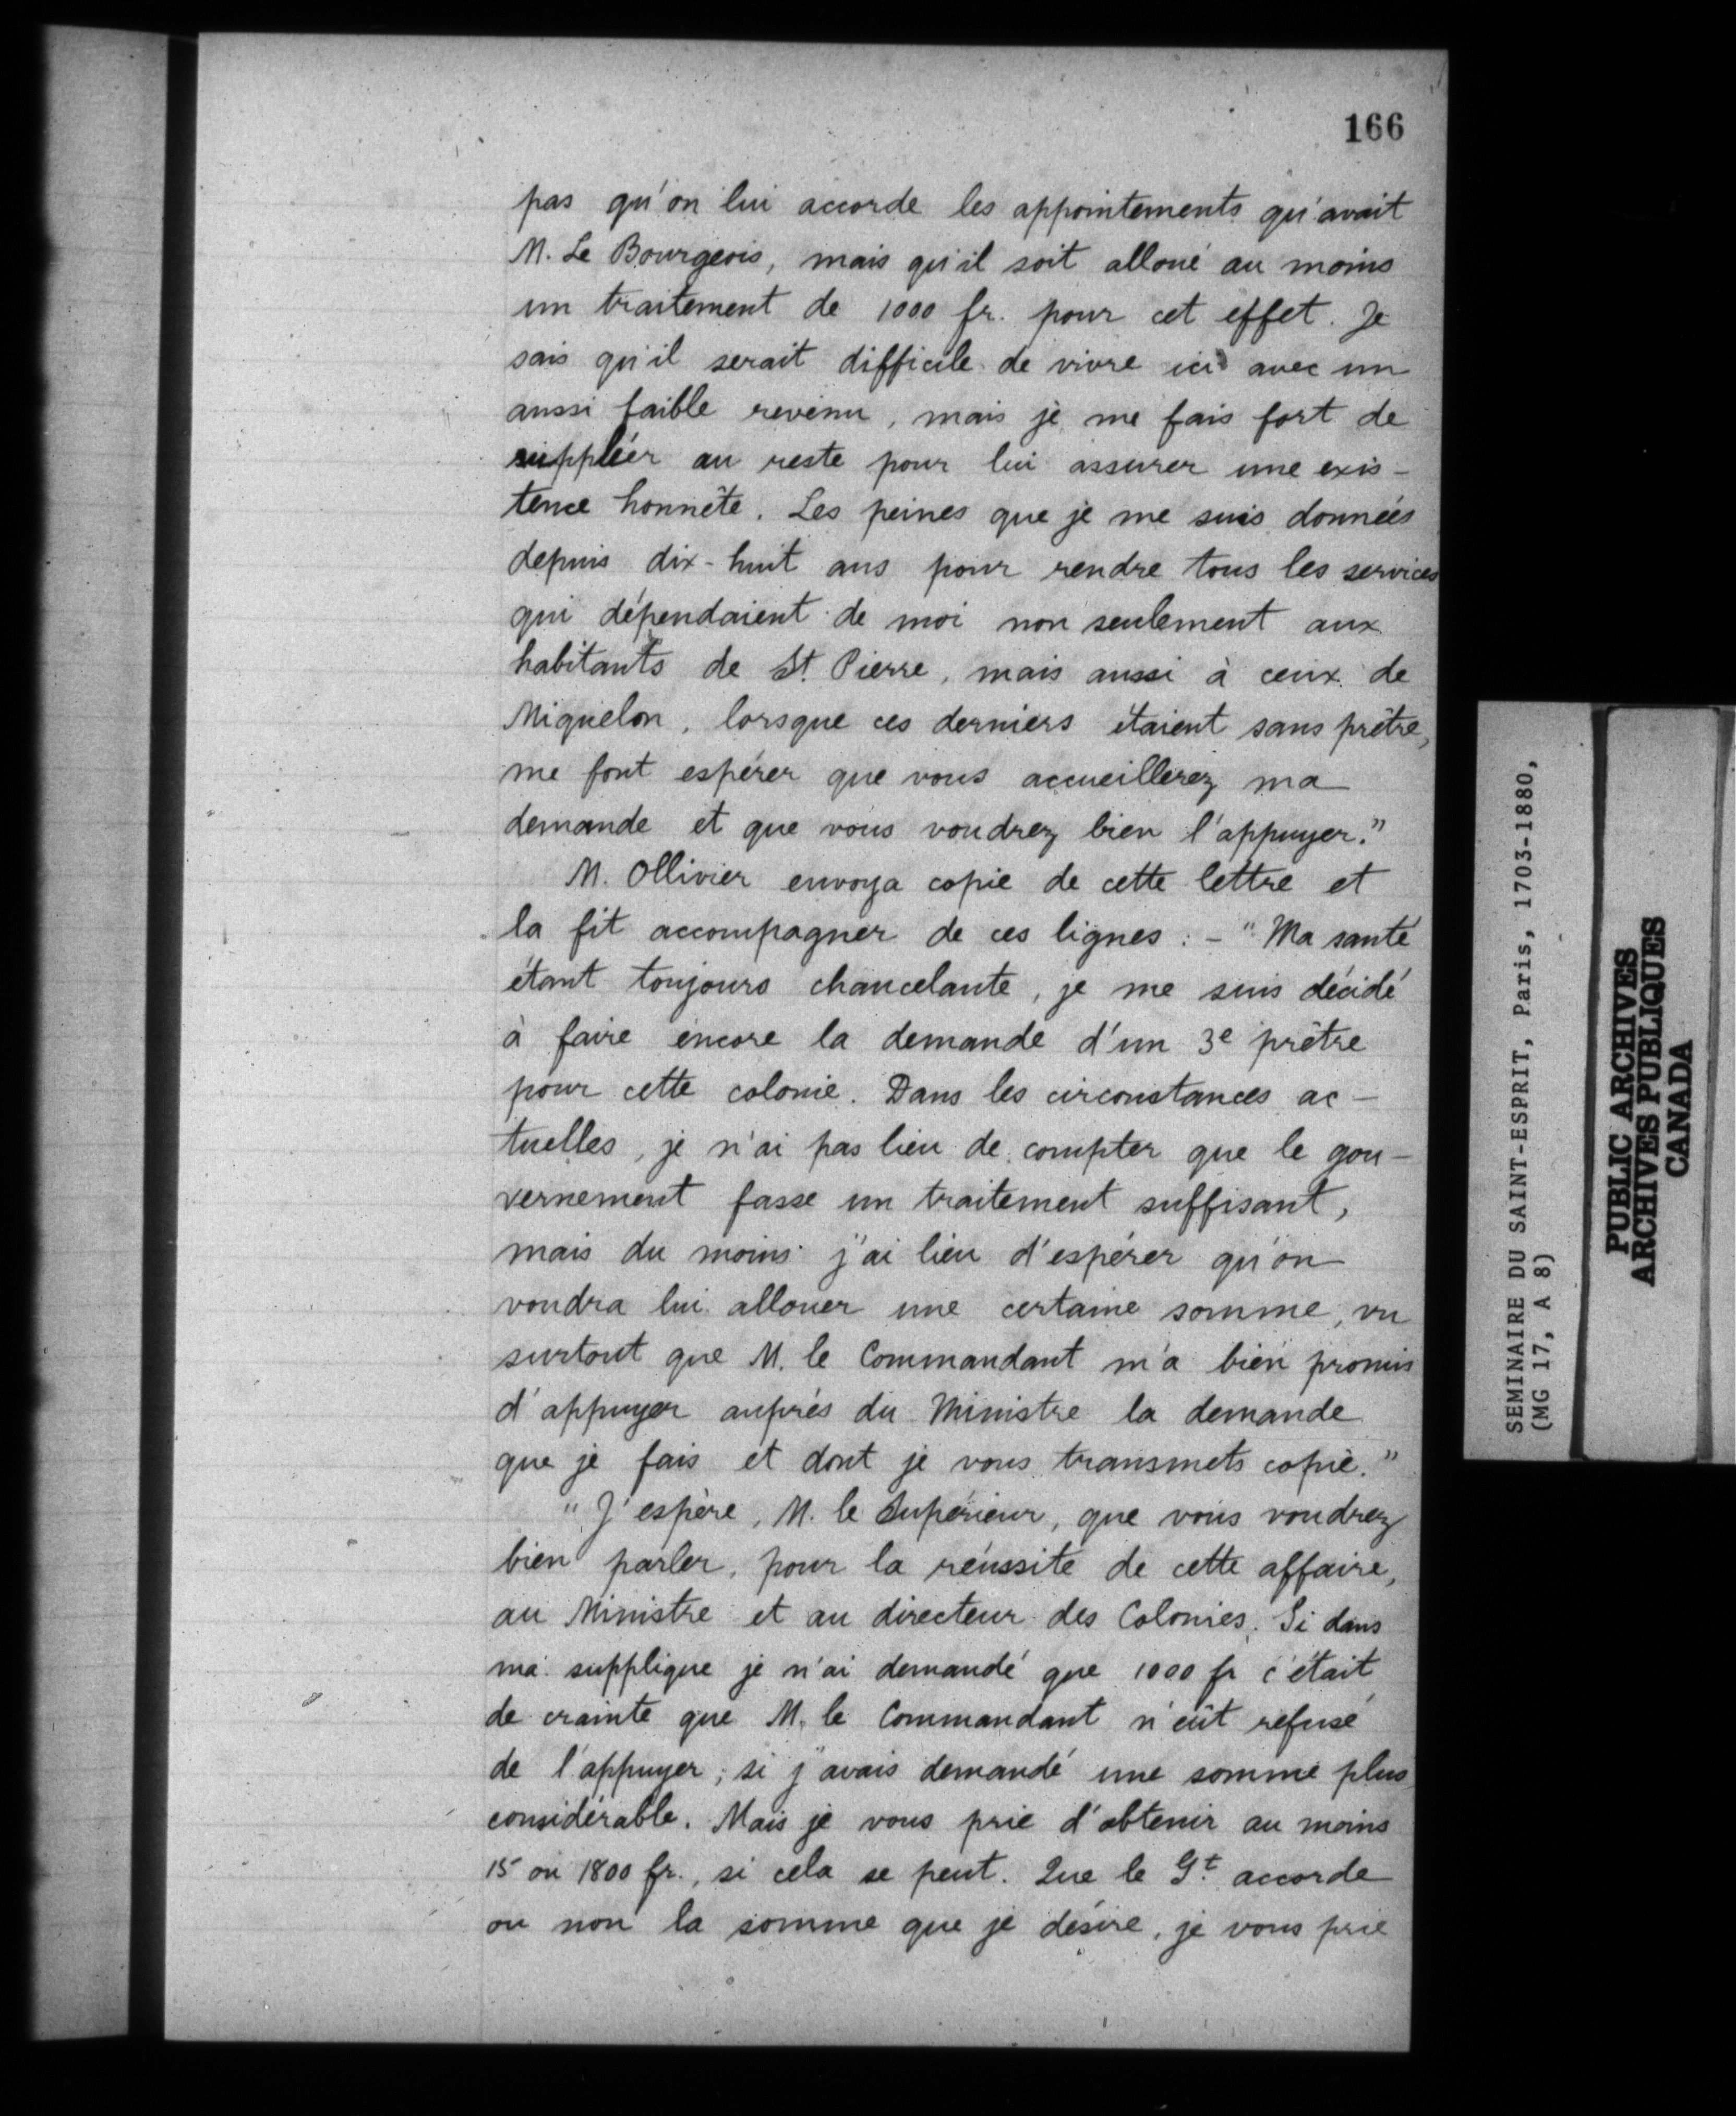 166
pas qu'on lui accorde les appointements qu'avait
M. Le Bourgeois, mais qu'il soit alloué au moins
un traitement de 1000 fr. pour cet effet. Je
sais qu'il serait difficile de vivre ici avec un
aussi faible revenu, mais je me fais fort de
suppléer au reste pour lui assurer une exis-
tence honnête. Les peines que je me suis données
depuis dix-huit ans pour rendre tous les services
qui dépendaient de moi non seulement aux
habitants de St. Pierre, mais aussi à ceux de
Miquelon, lorsque ces derniers étaient sans prêtre,
me font espérer que vous accueillerez ma
demande et que vous voudrez bien l'appuyer."
M. Ollivier envoya copie de cette lettre et
la fit accompagner de ces lignes : - "Ma santé
étant toujours chancelante, je me suis décidé
à faire encore la demande d'un 3e prêtre
pour cette colonie. Dans les circonstances ac-
tuelles, je n'ai pas lieu de compter que le gou-
vernement fasse un traitement suffisant,
mais du moins j'ai lieu d'espérer qu'on
voudra lui allouer une certaine somme, vu
surtout que M. le Commandant m'a bien promis
d'appuyer auprès du Ministre la demande
que je fais et dont je vous transmets copie."
"J'espère, M. le Supérieur, que vous voudrez
bien parler, pour la réussite de cette affaire,
au Ministre et au directeur des Colonies. Si dans
ma supplique je n'ai demandé que 1000 fr c'était
de crainte que M. le Commandant n'eût refusé
de l'appuyer; si j'avais demandé une somme plus
considérable. Mais je vous prie d'obtenir au moins
15 ou 1800 fr., si cela se peut. Que le Gt. accorde
ou non la somme que je désire, je vous prie
SEMINAIRE DU SAINT-ESPRIT, Paris, 1703-1880,
(MG 17, A 8)
PUBLIC ARCHIVES
ARCHIVES PUBLIQUES
CANADA